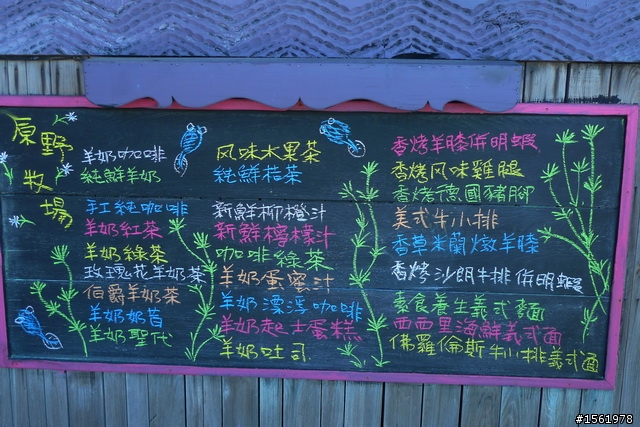 原野
牧
場
羊奶咖啡
純鮮羊奶
手工純咖啡
羊奶紅茶
羊奶綠茶
玫瑰花羊奶茶
伯爵羊奶茶
羊奶奶昔
羊奶聖代
风味水果茶
純鮮桔茶
新鮮柳橙汁
新鮮檸檬汁
咖啡綠茶
羊奶蛋蜜汁
羊奶漂浮咖啡
羊奶起士蛋糕
羊奶吐司
香烤羊膝併明蝦
香烤风味雞腿
香烤德國豬腳
美式牛小排
香草米蘭燉羊膝
香烤沙朗牛排併明蝦
素食養生義式麵
西西里海鮮義式面
佛羅倫斯牛小排義式面
#1561978